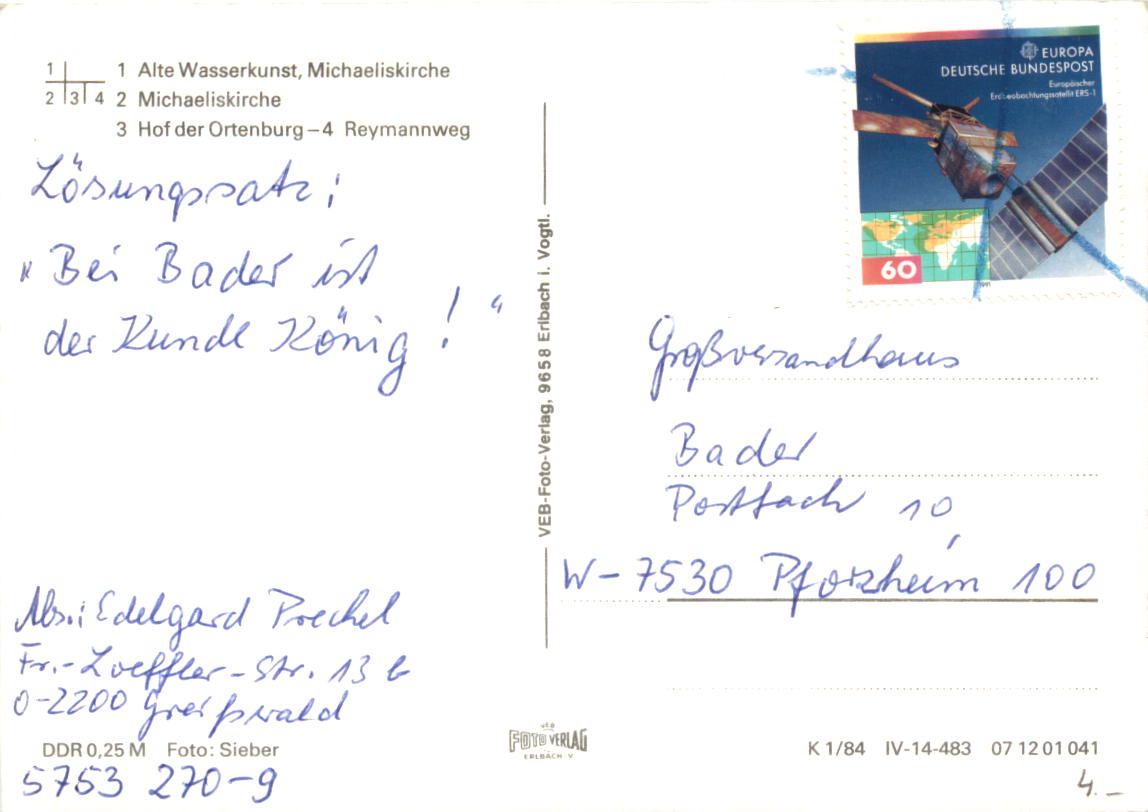 1 2 3 4
1 Alte Wasserkunst, Michaeliskirche
2 Michaeliskirche
3 Hof der Ortenburg – 4 Reymannweg
Lösungssatz:
"Bei Bader ist
der Kunde König!"
Abs.: Edelgard Prechel
Fr.-Loeffler-Str. 13 b
O-2200 Greifswald
DDR 0,25 M Foto: Sieber
5753 270-9
VEB-Foto-Verlag, 9658 Erlbach i. Vogtl.
VEB
FOTO VERLAG
ERLBACH V
EUROPA
DEUTSCHE BUNDESPOST
Europäischer
Erdbeobachtungssatellit ERS-1
60
1991
Großversandhaus
Bader
Postfach 10
W-7530 Pforzheim 100
K 1/84 IV-14-483 07 12 01 041
4.–